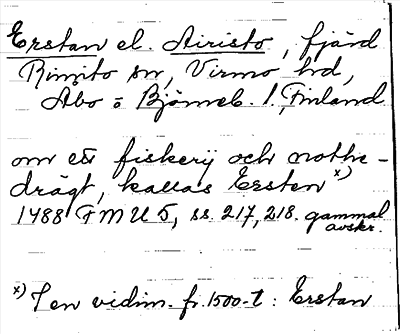 Erstan el. Airisto, fjärd
Rimito sn, Virmo hd,
Åbo o Björneb. l. Finland
om ett fiskerij och nothe-
drägt, kallas Ersten x)
1488 FMU 5, ss. 217, 218. gammal
avskr.
x) I en vidim. fr. 1500-t: Erstan